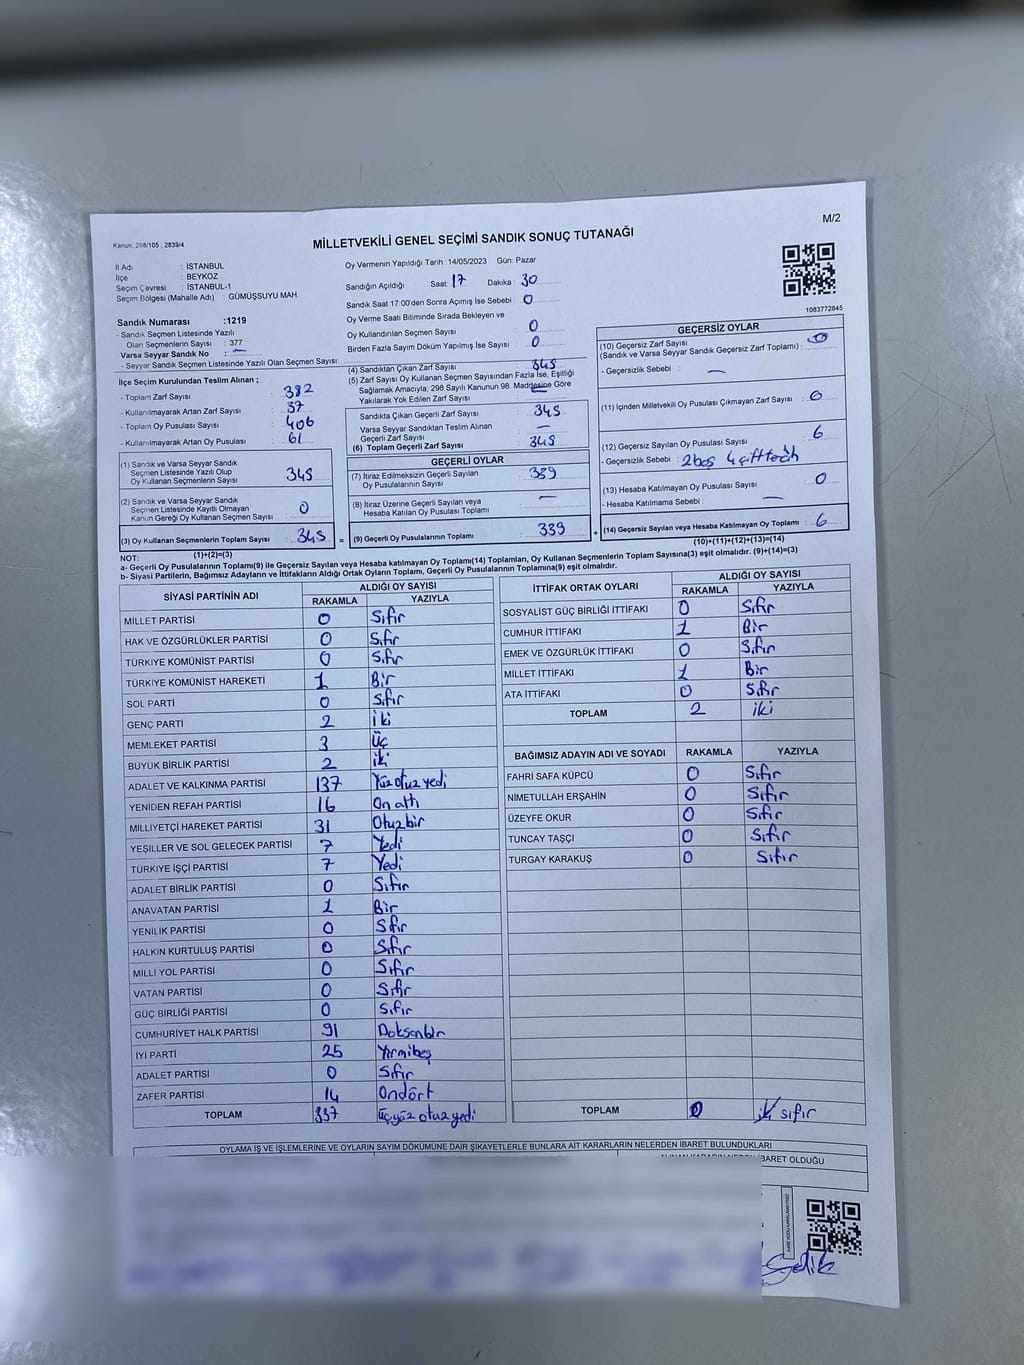 M/2
Kanun: 298/105 , 2839/4
MİLLETVEKİLİ GENEL SEÇİMİ SANDIK SONUÇ TUTANAĞI
İl Adı : İSTANBUL
İlçe : BEYKOZ
Seçim Çevresi : İSTANBUL-1
Seçim Bölgesi (Mahalle Adı) : GÜMÜŞSUYU MAH.
Sandık Numarası :1219
- Sandık Seçmen Listesinde Yazılı
Olan Seçmenlerin Sayısı : 377
Varsa Seyyar Sandık No : —
- Seyyar Sandık Seçmen Listesinde Yazılı Olan Seçmen Sayısı:
İlçe Seçim Kurulundan Teslim Alınan ;
- Toplam Zarf Sayısı : 382
- Kullanılmayarak Artan Zarf Sayısı : 37
- Toplam Oy Pusulası Sayısı : 406
- Kullanılmayarak Artan Oy Pusulası : 61
(1) Sandık ve Varsa Seyyar Sandık
Seçmen Listesinde Yazılı Olup
Oy Kullanan Seçmenlerin Sayısı : 345
(2) Sandık ve Varsa Seyyar Sandık
Seçmen Listesinde Kayıtlı Olmayan
Kanun Gereği Oy Kullanan Seçmen Sayısı : 0
(3) Oy Kullanan Seçmenlerin Toplam Sayısı : 345
(1)+(2)=(3)
Oy Vermenin Yapıldığı Tarih : 14/05/2023 Gün: Pazar
Sandığın Açıldığı Saat: 17 Dakika : 30
Sandık Saat 17:00'den Sonra Açımış İse Sebebi : 0
Oy Verme Saati Bitiminde Sırada Bekleyen ve
Oy Kullandırılan Seçmen Sayısı : 0
Birden Fazla Sayım Döküm Yapılmış İse Sayısı : 0
(4) Sandıktan Çıkan Zarf Sayısı : 345
(5) Zarf Sayısı Oy Kullanan Seçmen Sayısından Fazla İse, Eşitliği
Sağlamak Amacıyla, 298 Sayılı Kanunun 98. Maddesine Göre
Yakılarak Yok Edilen Zarf Sayısı :
Sandıkta Çıkan Geçerli Zarf Sayısı : 345
Varsa Seyyar Sandıktan Teslim Alınan
Geçerli Zarf Sayısı : —
(6) Toplam Geçerli Zarf Sayısı : 345
GEÇERLİ OYLAR
(7) İtiraz Edilmeksizin Geçerli Sayılan
Oy Pusulalarının Sayısı : 339
(8) İtiraz Üzerine Geçerli Sayılan veya
Hesaba Katılan Oy Pusulası Toplamı : —
= (9) Geçerli Oy Pusulalarının Toplamı : 339
1083772845
GEÇERSİZ OYLAR
(10) Geçersiz Zarf Sayısı : 0
(Sandık ve Varsa Seyyar Sandık Geçersiz Zarf Toplamı)
- Geçersizlik Sebebi : —
(11) İçinden Milletvekili Oy Pusulası Çıkmayan Zarf Sayısı : 0
(12) Geçersiz Sayılan Oy Pusulası Sayısı : 6
- Geçersizlik Sebebi : 2boş 4
(13) Hesaba Katılmayan Oy Pusulası Sayısı : 0
- Hesaba Katılmama Sebebi : —
+ (14) Geçersiz Sayılan veya Hesaba Katılmayan Oy Toplamı : 6
(10)+(11)+(12)+(13)=(14)
NOT:
a- Geçerli Oy Pusulalarının Toplamı(9) ile Geçersiz Sayılan veya Hesaba katılmayan Oy Toplamı(14) Toplamları, Oy Kullanan Seçmenlerin Toplam Sayısına(3) eşit olmalıdır. (9)+(14)=(3)
b- Siyasi Partilerin, Bağımsız Adayların ve İttifakların Aldığı Ortak Oyların Toplamı, Geçerli Oy Pusulalarının Toplamına(9) eşit olmalıdır.
SİYASİ PARTİNİN ADI ALDIĞI OY SAYISI
RAKAMLA YAZIYLA
MİLLET PARTİSİ 0 Sıfır
HAK VE ÖZGÜRLÜKLER PARTİSİ 0 Sıfır
TÜRKİYE KOMÜNİST PARTİSİ 0 Sıfır
TÜRKİYE KOMÜNİST HAREKETİ 1 Bir
SOL PARTİ 0 Sıfır
GENÇ PARTİ 2 İki
MEMLEKET PARTİSİ 3 Üç
BÜYÜK BİRLİK PARTİSİ 2 iki
ADALET VE KALKINMA PARTİSİ 137 Yüzotuzyedi
YENİDEN REFAH PARTİSİ 16 Onaltı
MİLLİYETÇİ HAREKET PARTİSİ 31 Otuzbir
YEŞİLLER VE SOL GELECEK PARTİSİ 7 Yedi
TÜRKİYE İŞÇİ PARTİSİ 7 Yedi
ADALET BİRLİK PARTİSİ 0 Sıfır
ANAVATAN PARTİSİ 1 Bir
YENİLİK PARTİSİ 0 Sıfır
HALKIN KURTULUŞ PARTİSİ 0 Sıfır
MİLLİ YOL PARTİSİ 0 Sıfır
VATAN PARTİSİ 0 Sıfır
GÜÇ BİRLİĞİ PARTİSİ 0 Sıfır
CUMHURİYET HALK PARTİSİ 91 Doksanbir
İYİ PARTİ 25 Yirmibeş
ADALET PARTİSİ 0 Sıfır
ZAFER PARTİSİ 14 Ondört
TOPLAM 337 Üçyüzotuzyedi
İTTİFAK ORTAK OYLARI ALDIĞI OY SAYISI
RAKAMLA YAZIYLA
SOSYALİST GÜÇ BİRLİĞİ İTTİFAKI 0 Sıfır
CUMHUR İTTİFAKI 1 Bir
EMEK VE ÖZGÜRLÜK İTTİFAKI 0 Sıfır
MİLLET İTTİFAKI 1 Bir
ATA İTTİFAKI 0 Sıfır
TOPLAM 2 iki
BAĞIMSIZ ADAYIN ADI VE SOYADI RAKAMLA YAZIYLA
FAHRİ SAFA KÜPCÜ 0 Sıfır
NİMETULLAH ERŞAHİN 0 Sıfır
ÜZEYFE OKUR 0 Sıfır
TUNCAY TAŞÇI 0 Sıfır
TURGAY KARAKUŞ 0 Sıfır
TOPLAM 0 sıfır
OYLAMA İŞ VE İŞLEMLERİNE VE OYLARIN SAYIM DÖKÜMÜNE DAİR ŞİKAYETLERLE BUNLARA AİT KARARLARIN NELERDEN İBARET BULUNDUKLARI
İBARET OLDUĞU